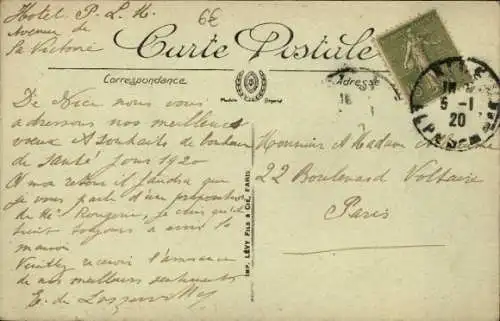 Hotel P. L. M.
Avenue de
la Victoire
6€
Carte Postale
Correspondance
Adresse
Modèle Déposé
De Nice nous vous
adressons nos meilleurs
vœux & souhaits de bonheur
de santé pour 1920
A mon retour il faudra que
je vous parle d'une proposition
de Mr
je crois qu'il
serait toujours
Veuillez recevoir l'assurance
de nos meilleurs sentiments
E. de
IMP. LÉVY FILS & CIE, PARIS
Monsieur & Madame
22 Boulevard Voltaire
Paris
5-1
20